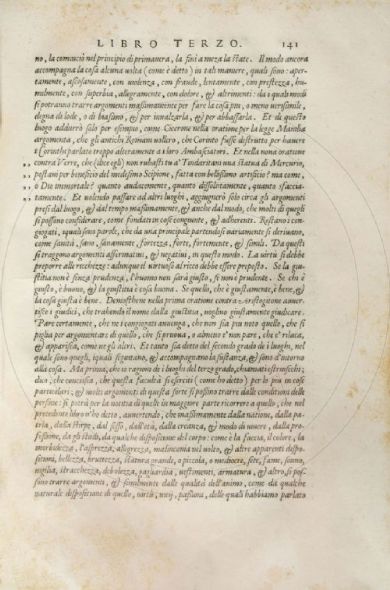 LIBRO TERZO. 141
no, la cominciò nel principio di primauera, la finì a meza la state. Il modo ancora
accompagna la cosa alcuna uolta (come è detto) in tali maniere, quali sono: aper-
tamente, ascosamente, con uiolenza, con fraude, lentamente, con prestezza, hu-
milmente, con superbia, allegramente, con dolore, & altrimenti: da i quali modi
si potranno trarre argomenti massimamente per fare la cosa piu, o meno uerisimile,
degna di lode, o di biasimo, & per innalzarla, & per abbassarla. Et di questo
luogo addurrò solo per esempio, come Cicerone nella oratione per la legge Manilia
argomenta, che gli antichi Romani uolsero, che Corinto fusse distrutto per hauere
i Corinthi parlato troppo alteramente a i loro Ambasciatori. Et nella nona oratione
contra Verre, che (dice egli) non rubasti tu a' Tindaritani una statua di Mercurio,
„ postaui per beneficio del medesimo Scipione, fatta con bellissimo artificio? ma come,
„ o Dii immortali? quanto audacemente, quanto dissolutamente, quanto sfaccia-
„ tamente. Et uolendo passare ad altri luoghi, aggiugnerò solo circa gli argomenti
presi dal luogo, & dal tempo massimamente, & anche dal modo, che molti di quegli
si possono considerare, come fondati in cose congiunte, & adherenti. Restano i con-
iugati, i quali sono parole, che da una principale partendosi uariamente si deriuano,
come sanità, sano, sanamente, fortezza, forte, fortemente, & simili. Da questi
si traggono argomenti affermatiui, & negatiui, in questo modo. La uirtù si debbe
preporre alle ricchezze: adunque il uirtuoso al ricco debbe essere preposto. Se la giu-
stitia non è senza prudenza, l'huomo non sarà giusto, se non è prudente. Se chi è
giusto, è buono, & la giustitia è cosa buona. Se quello, che è giustamente, è bene, &
la cosa giusta è bene. Demosthene nella prima oratione contra Aristogitone auuer-
tisce i giudici, che trahendo il nome dalla giustitia, uoglino giustamente giudicare.
Pare certamente, che ne i congiugati auuenga, che non sia piu noto quello, che si
piglia per argomentare: di quello, che si pruoua, o almeno non pare, che è rieca,
& apparisca, come ne gli altri. Et tanto sia detto del secondo grado de i luoghi, nel
quale sono quegli, i quali seguitano, & accompagnano la sustanza, & sono d'intorno
alla cosa. Ma prima, che io ragioni de i luoghi del terzo grado, chiamati estrinsechi;
dico, che conciosia, che questa faculta si eserciti (come ho detto) per lo piu in cose
particolari, & molti argomenti di questa sorte si possono trarre dalle conditioni delle
persone: si potrà per la notitia di quelle in maggior parte ricorrere a quello, che nel
precedente libro n'ho detto, auuertendo, che massimamente dalla natione, dalla pa-
tria, dalla stirpe, dal sesso, dall'età, dalla creanza, & modo di uiuere, dalla pro-
fessione, da gli studi, da qualche dispositione del corpo: come è la faccia, il colore, la
morbidezza, l'asprezza, allegrezza, malinconia nel uolto, & altre apparenti dispo-
sitioni, bellezza, bruttezza, statura grande, o picciola, o mediocre, sete, fame, sonno,
uigilia, stracchezza, debolezza, gagliardia, uestimenti, armatura, & altro, si pos-
sono trarre argomenti, & similmente dalle qualità dell'animo, come da qualche
naturale dispositione di quello, uirtù, uitij, passioni, delle quali habbiamo parlato